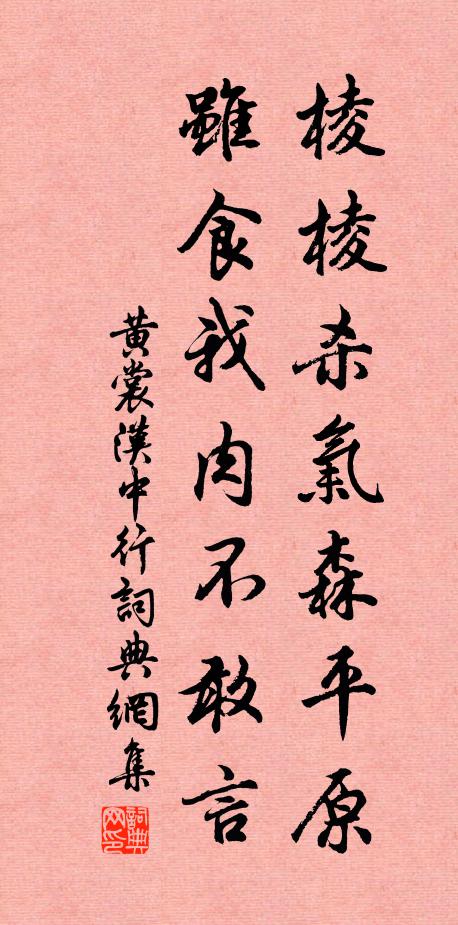 棱棱杀氣森平原
雖食我肉不敢言
黄裳漢中行詞典網集
詞典网印